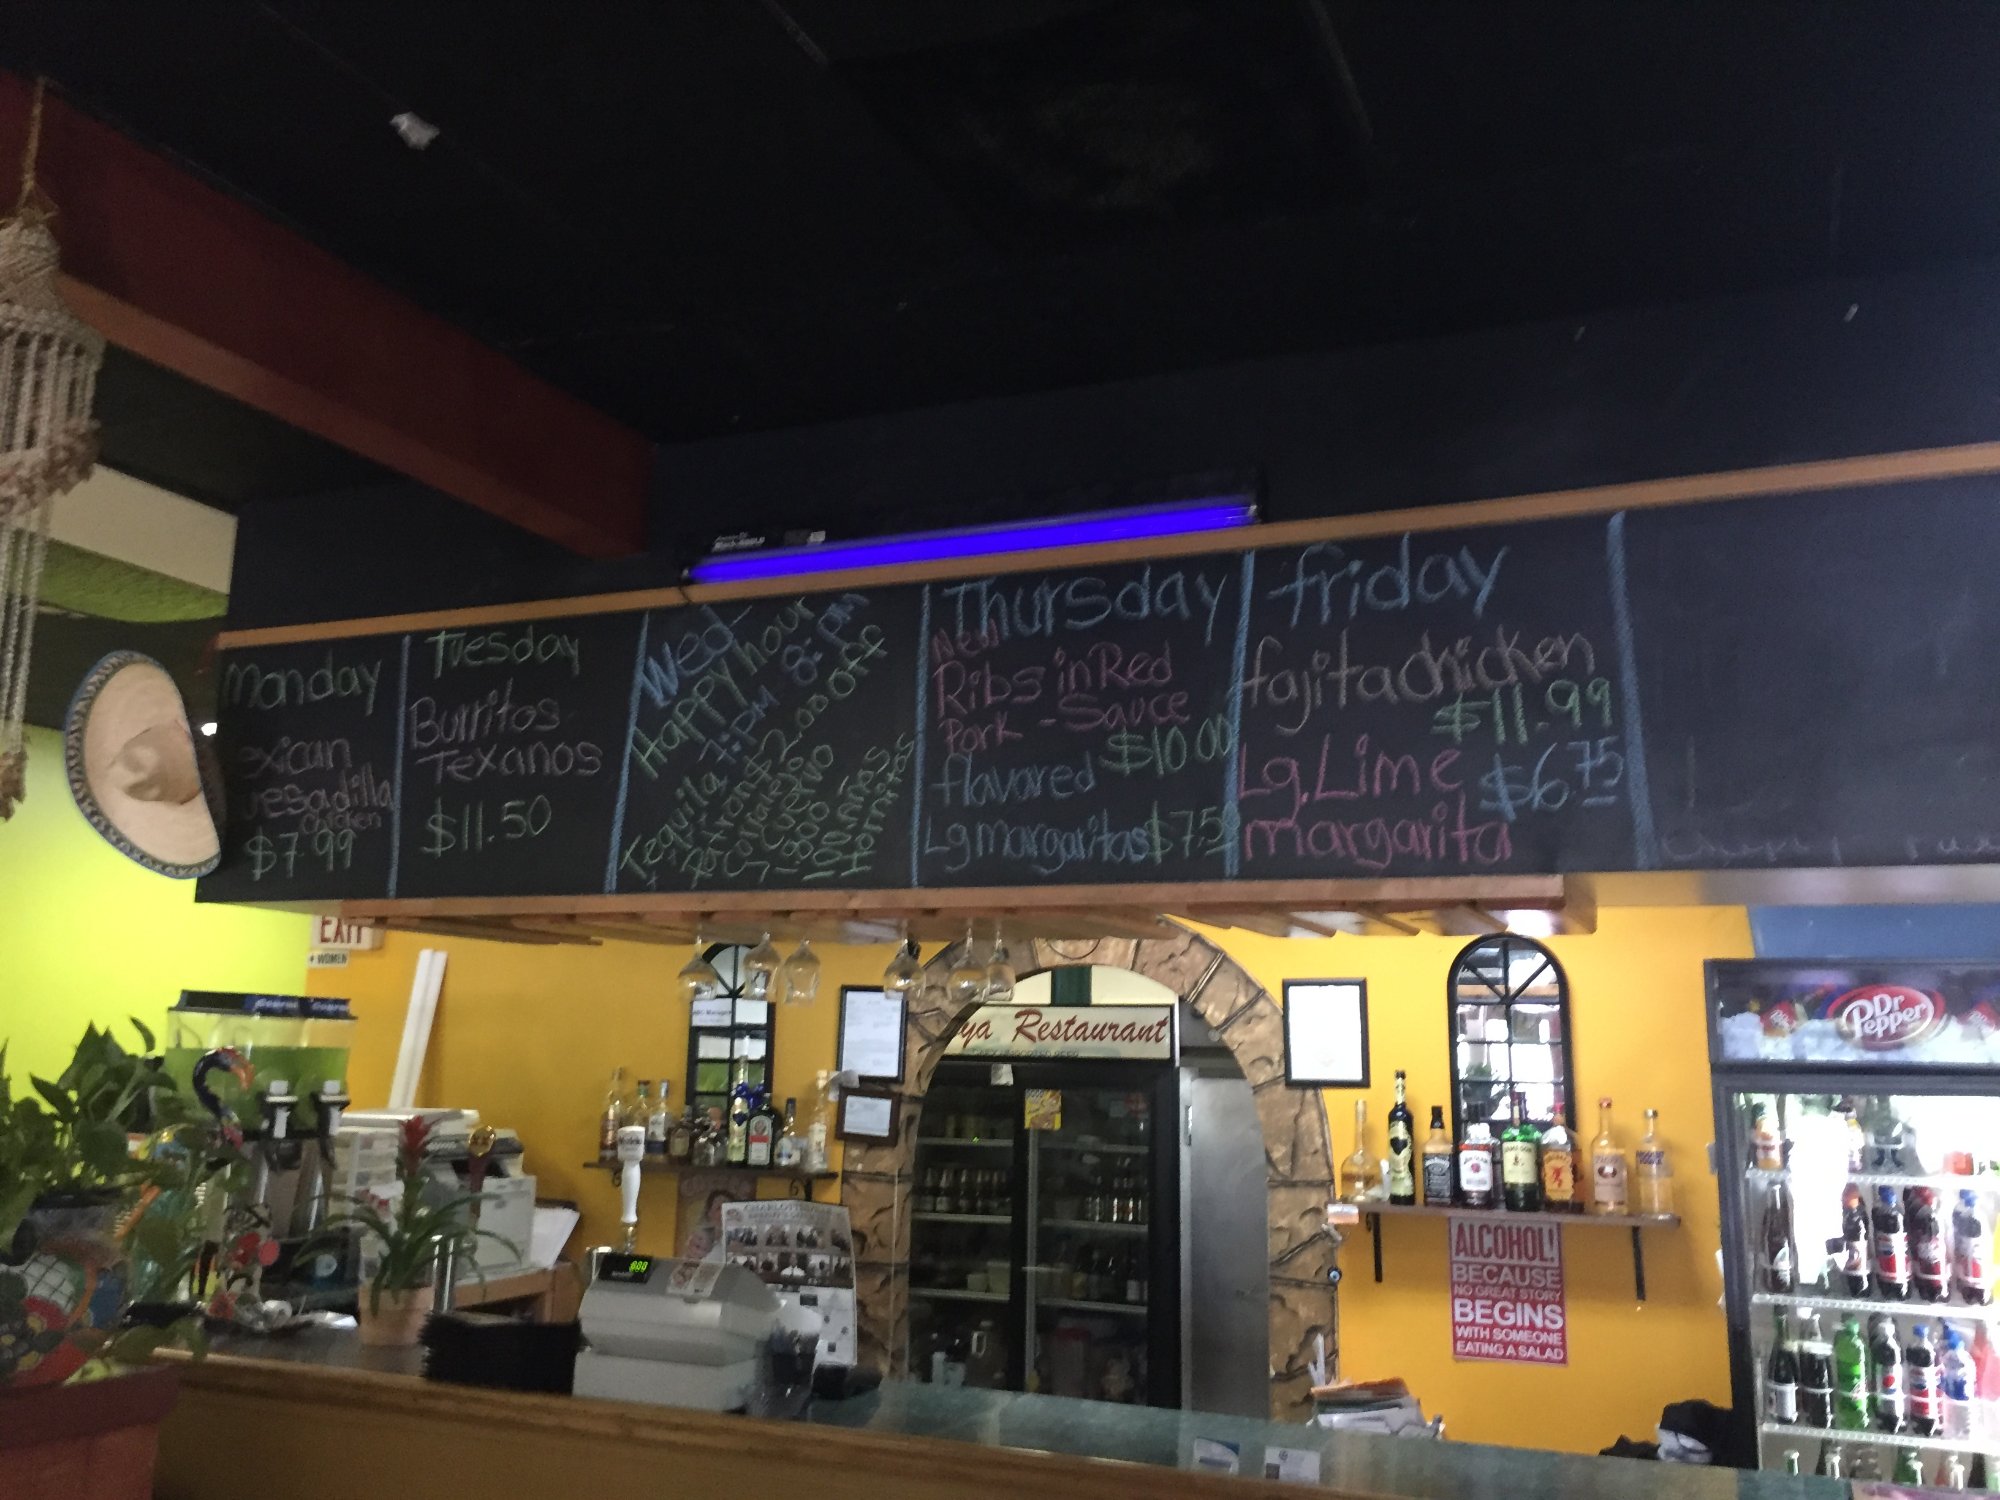 Monday
exican
uesadilla
Chicken
$7.99
Tuesday
Burritos
Texanos
$11.50
Wed-
Happy hour
7:PM 8:PM
Tequila $2.00 off
Patron
Corralejo
Cuervo
1800
100.Años
Hornitos
Thursday
New
Ribs in Red
Pork - Sauce
$10.00
flavored
Lg margaritas $7.50
friday
fajita chicken
$11.99
Lg. Lime $6.75
margarita
EXIT
WOMEN
ya Restaurant
Dr
Pepper
ALCOHOL!
BECAUSE
NO GREAT STORY
BEGINS
WITH SOMEONE
EATING A SALAD
600